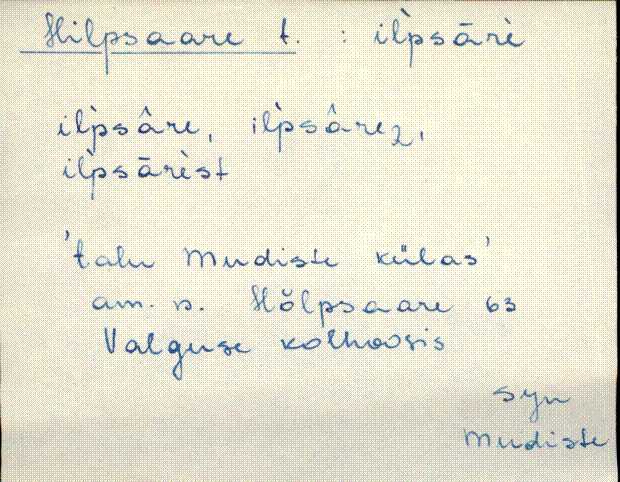 Hilpsaare t. : il̀psārè
il̀psâre, il̀psârez,
il̀psārèst
'talu Mudiste külas'
am. n. Hõlpsaare 63
Valguse kolhoosis
SJn
Mudiste